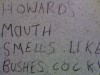 HOWARDS
MOUTH
SMELLS LIKE
BUSHES COCK